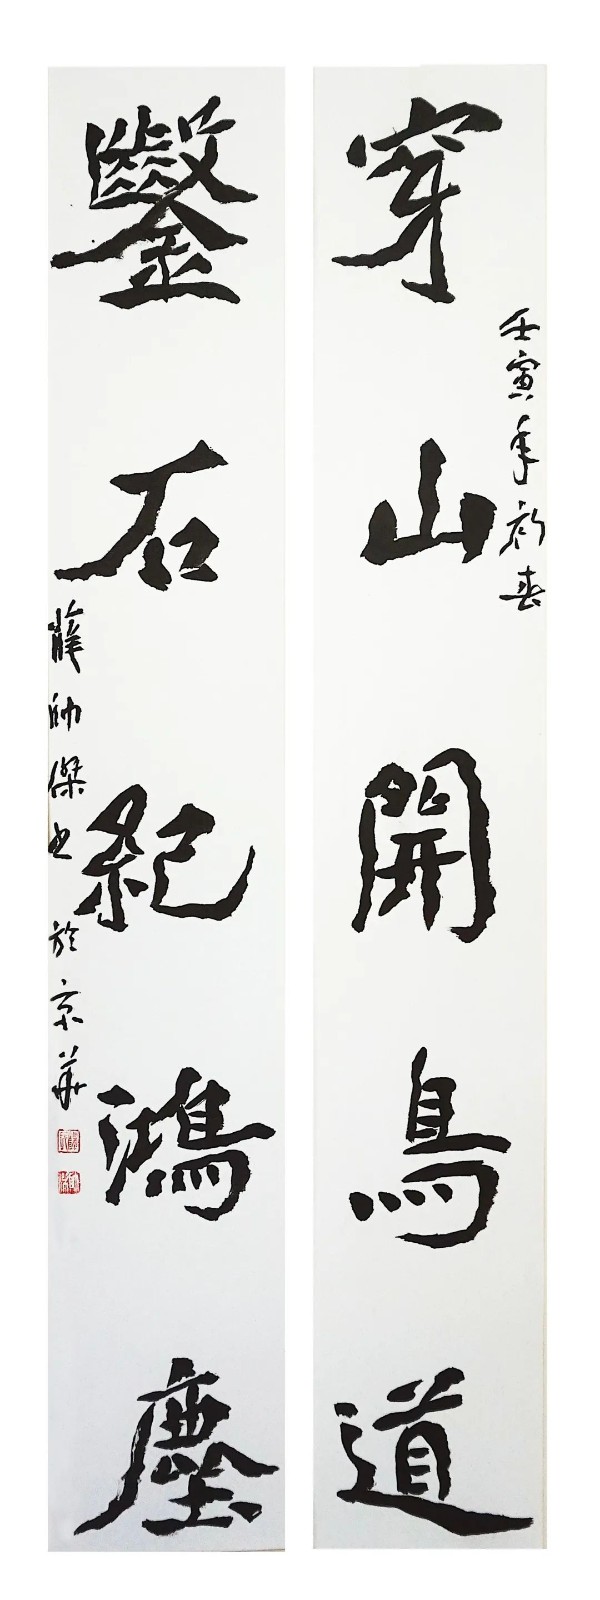 穿山開鳥道
壬寅年初春
鑿石紀鴻塵
薛帥傑书於京華